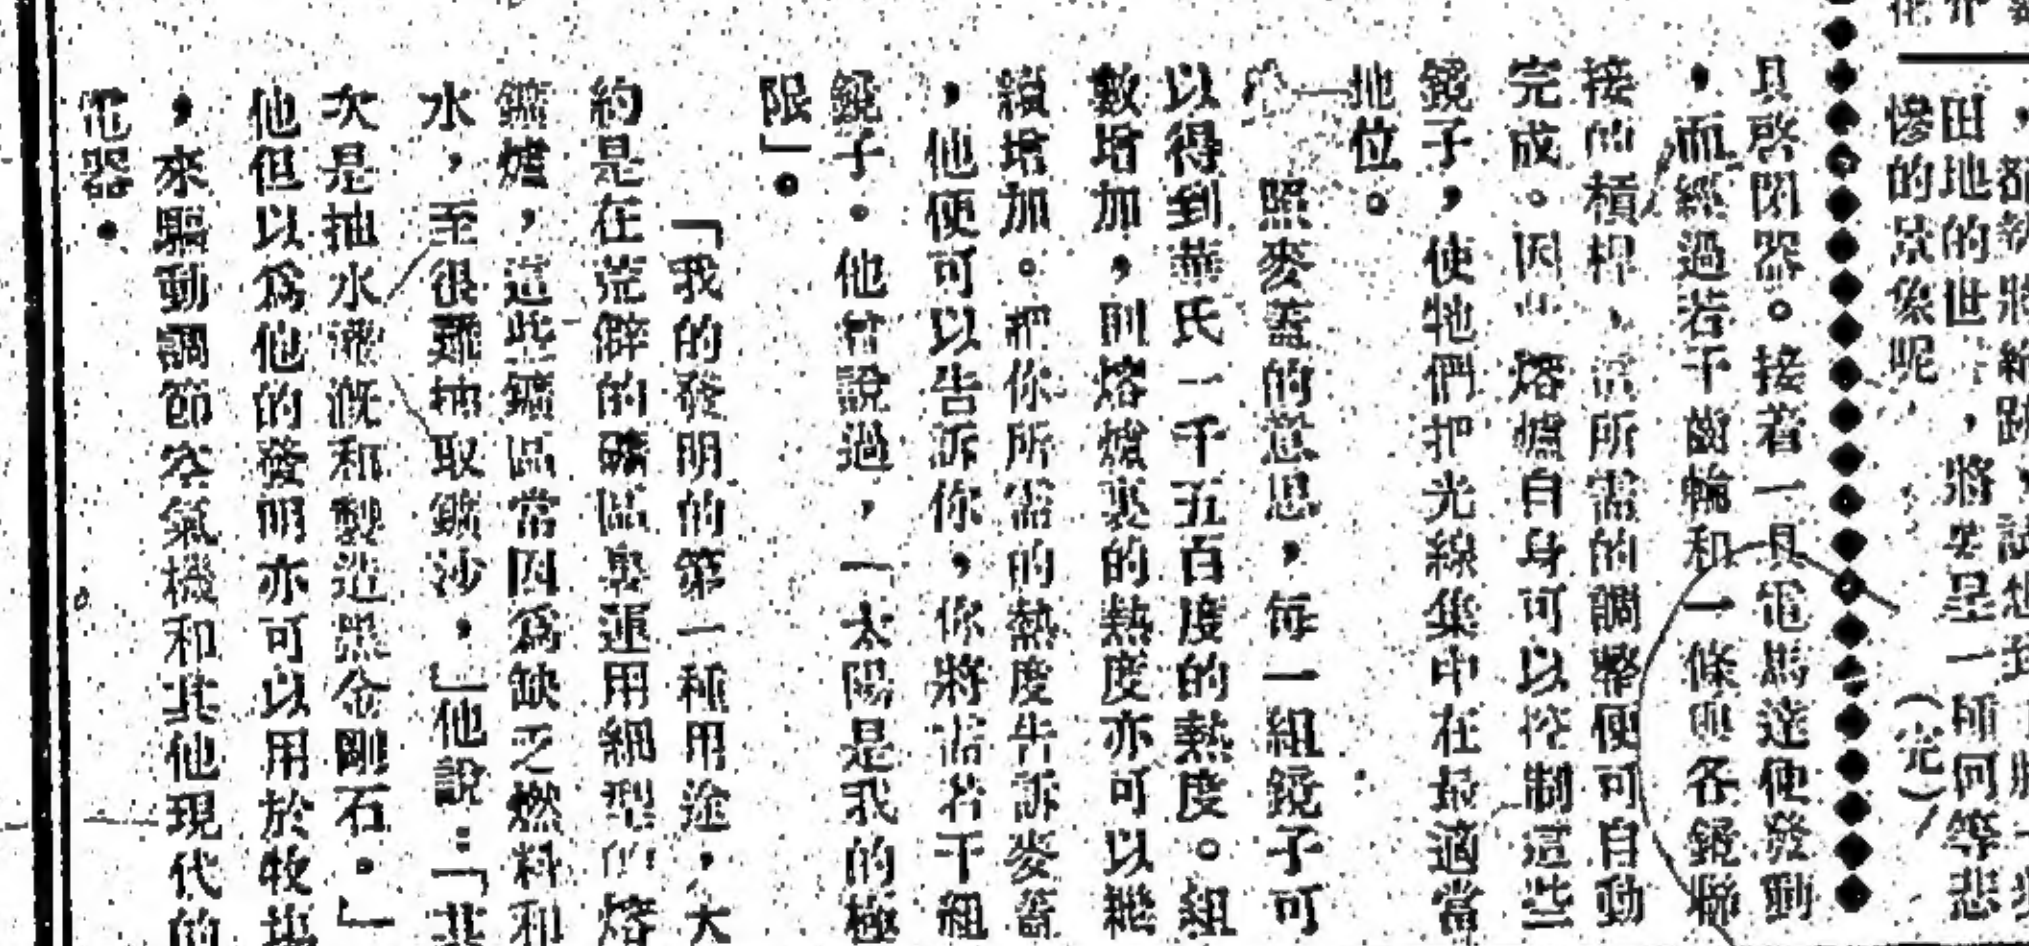 ，都
田地的世，將是一何等悲
慘的景象呢
（完）
具啓閉器。接着一具電馬達使發動
，而經過若干齒輪和一條與各鏡聯
接的槓桿、所需的調整便可自動
完成。因此熔爐自身可以控制這些
鏡子，使牠們把光線集中在最適當
地位。
照麥蓋的意思，每一組鏡子可
以得到華氏一千五百度的熱度。組
數增加，則熔爐裏的熱度亦可以繼
續增加。把你所需的熱度告訴麥蓋
，他便可以告訴你，你將需若干組
鏡子。他曾說過，一太陽是我的極
限」。
「我的發明的第一種用途，大
約是在荒僻的礦區裏運用細型的熔
鑛爐，這些鑛區常因爲缺乏燃料和
水，至很難抽取鑛沙，」他說：「其
次是抽水灌漑和製造黑金剛石。」
他但以爲他的發明亦可以用於牧場
，來驅動調節空氣機和其他現代的
電器．